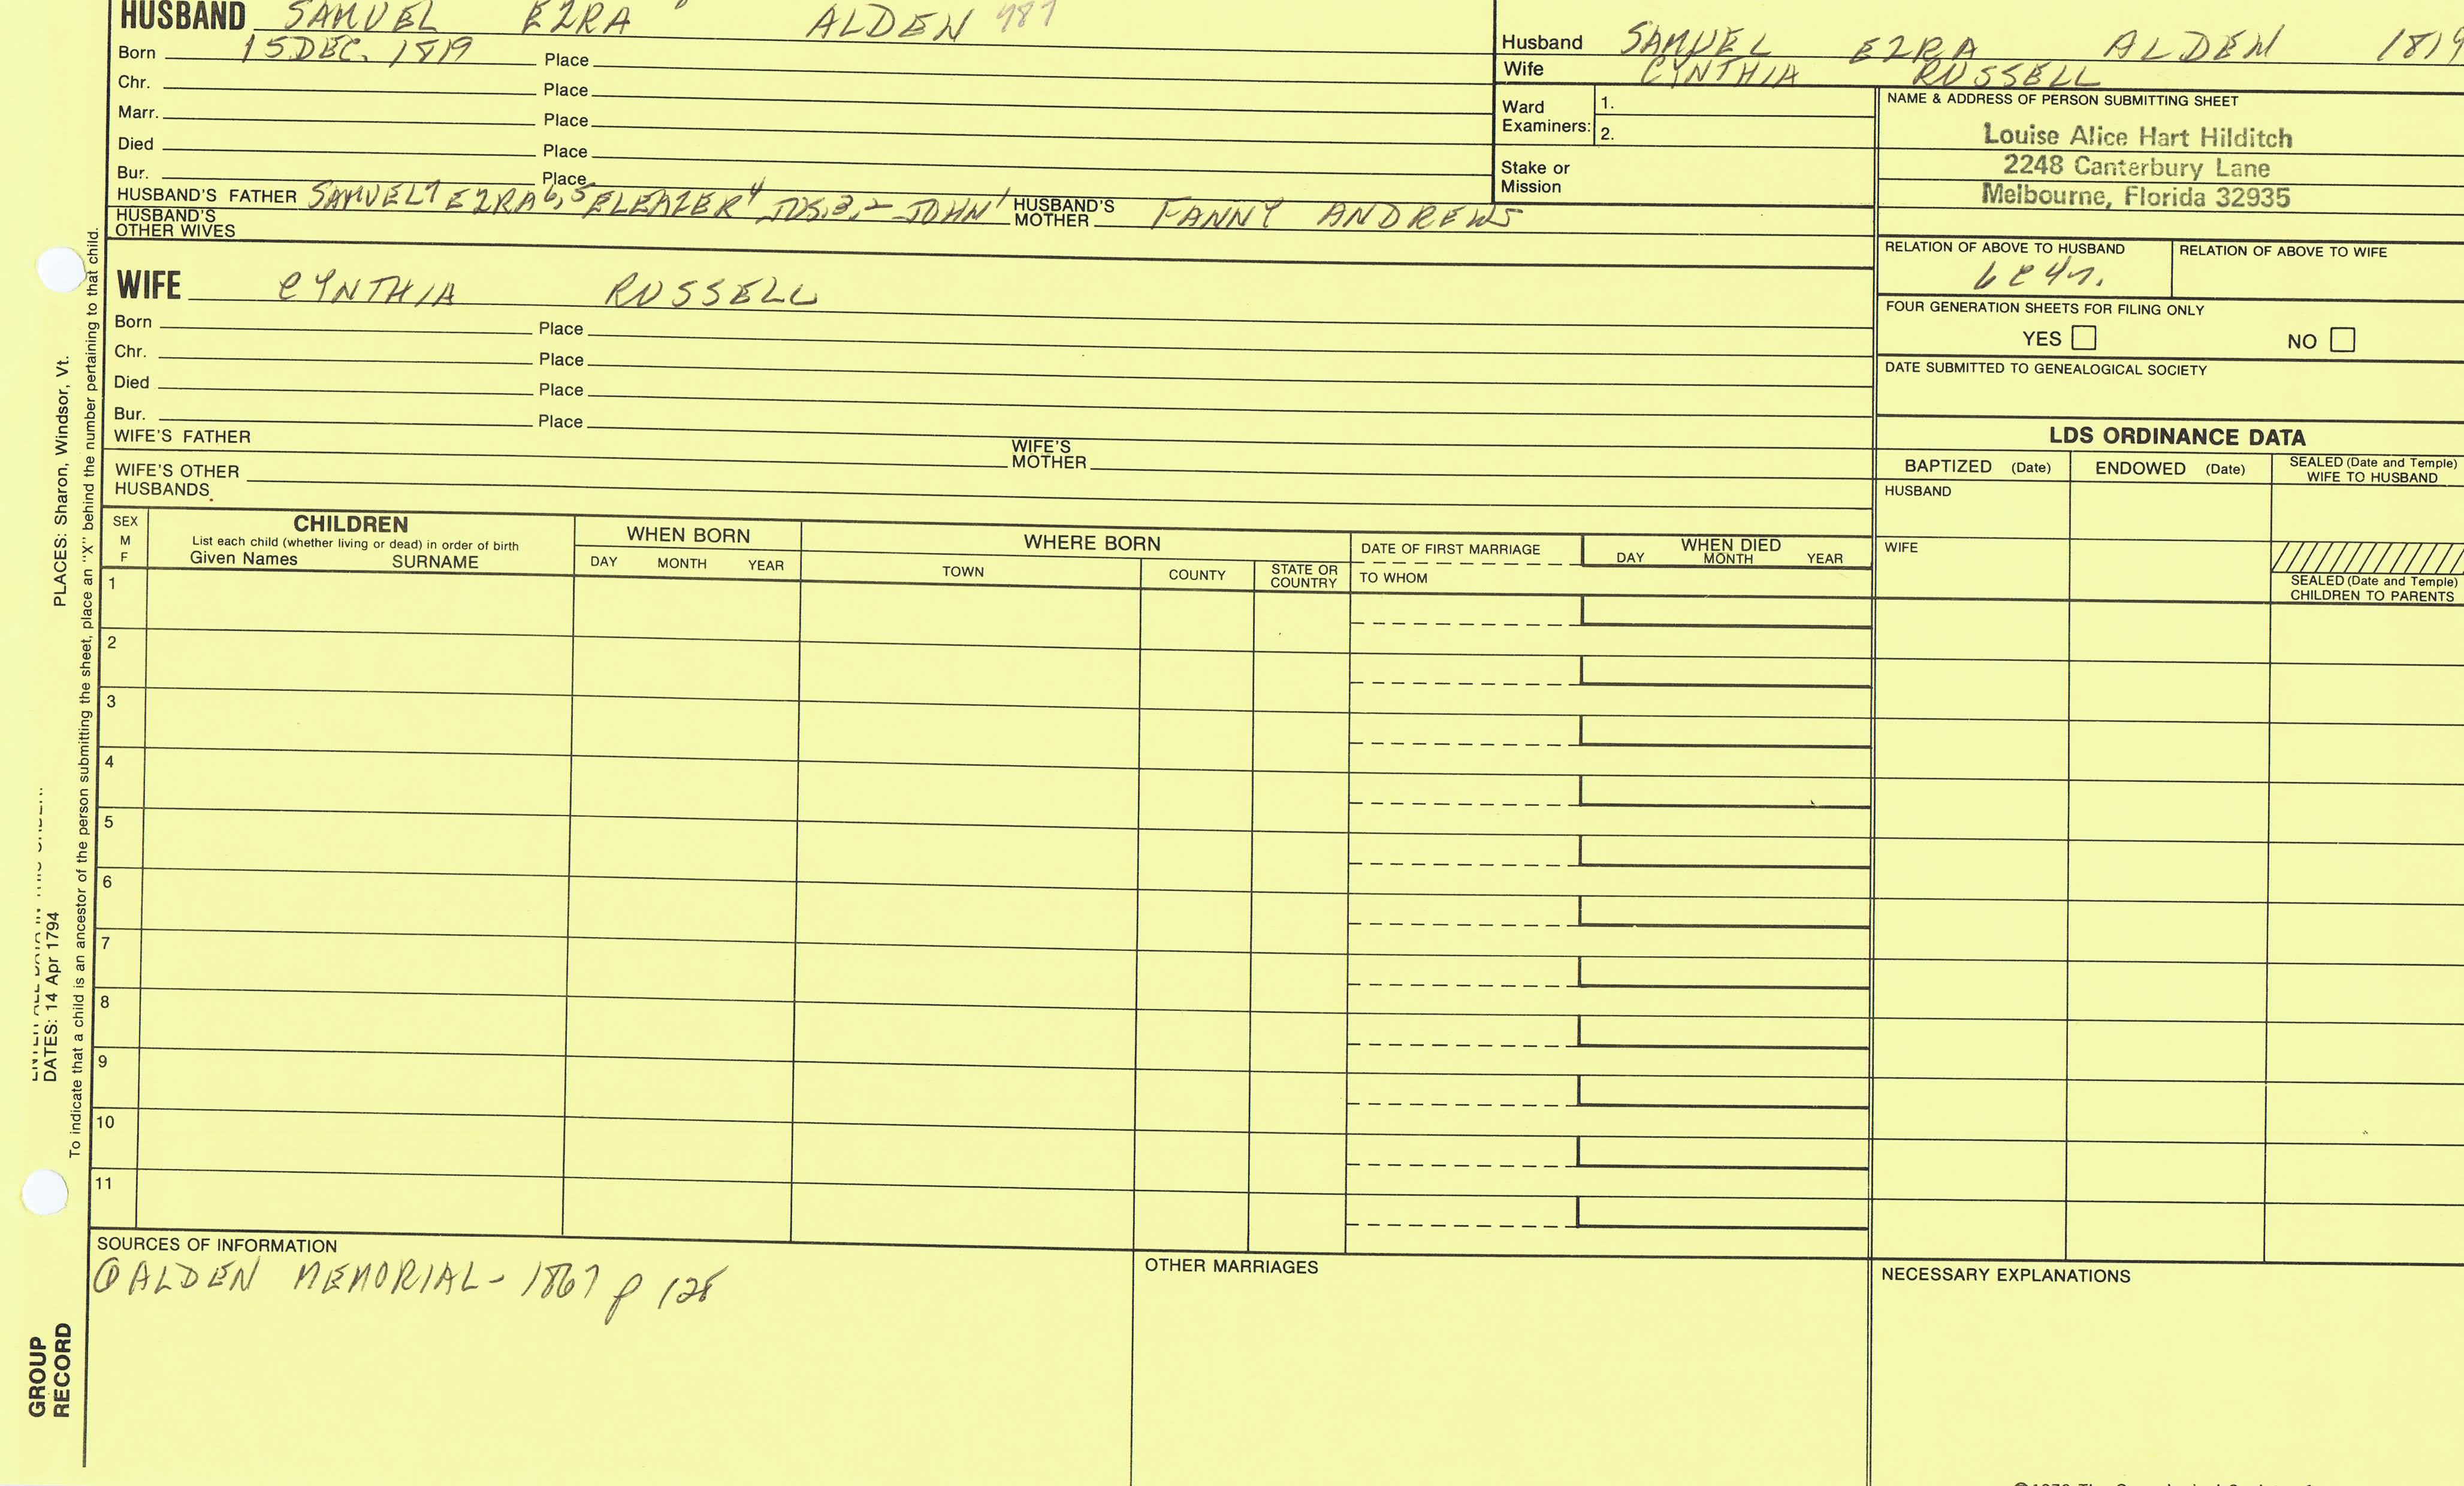 HUSBAND SAMUEL EZRA ALDEN 987
Born 15 DEC. 1819 Place
Chr. Place
Marr. Place
Died Place
Bur. Place
HUSBAND'S FATHER SAMUEL7 EZRA6,5 ELEAZER4 JOS.3,2 JOHN1 HUSBAND'S MOTHER FANNY ANDREWS
HUSBAND'S OTHER WIVES
WIFE CYNTHIA RUSSELL
Born Place
Chr. Place
Died Place
Bur. Place
WIFE'S FATHER WIFE'S MOTHER
WIFE'S OTHER HUSBANDS
Husband SAMUEL EZRA ALDEN 1819
Wife CYNTHIA RUSSELL
Ward Examiners: 1.
2.
Stake or Mission
NAME & ADDRESS OF PERSON SUBMITTING SHEET
Louise Alice Hart Hilditch
2248 Canterbury Lane
Melbourne, Florida 32935
RELATION OF ABOVE TO HUSBAND RELATION OF ABOVE TO WIFE
6C4r.
FOUR GENERATION SHEETS FOR FILING ONLY
YES NO
DATE SUBMITTED TO GENEALOGICAL SOCIETY
LDS ORDINANCE DATA
BAPTIZED (Date) ENDOWED (Date) SEALED (Date and Temple) WIFE TO HUSBAND
HUSBAND
WIFE
SEALED (Date and Temple) CHILDREN TO PARENTS
SEX M F
CHILDREN
List each child (whether living or dead) in order of birth
Given Names SURNAME
WHEN BORN
DAY MONTH YEAR
WHERE BORN
TOWN COUNTY STATE OR COUNTRY
DATE OF FIRST MARRIAGE
TO WHOM
WHEN DIED
DAY MONTH YEAR
1
2
3
4
5
6
7
8
9
10
11
SOURCES OF INFORMATION
① ALDEN MEMORIAL - 1867 p 128
OTHER MARRIAGES
NECESSARY EXPLANATIONS
PLACES: Sharon, Windsor, Vt.
DATES: 14 Apr 1794
To indicate that a child is an ancestor of the person submitting the sheet, place an "X" behind the number pertaining to that child.
GROUP
RECORD